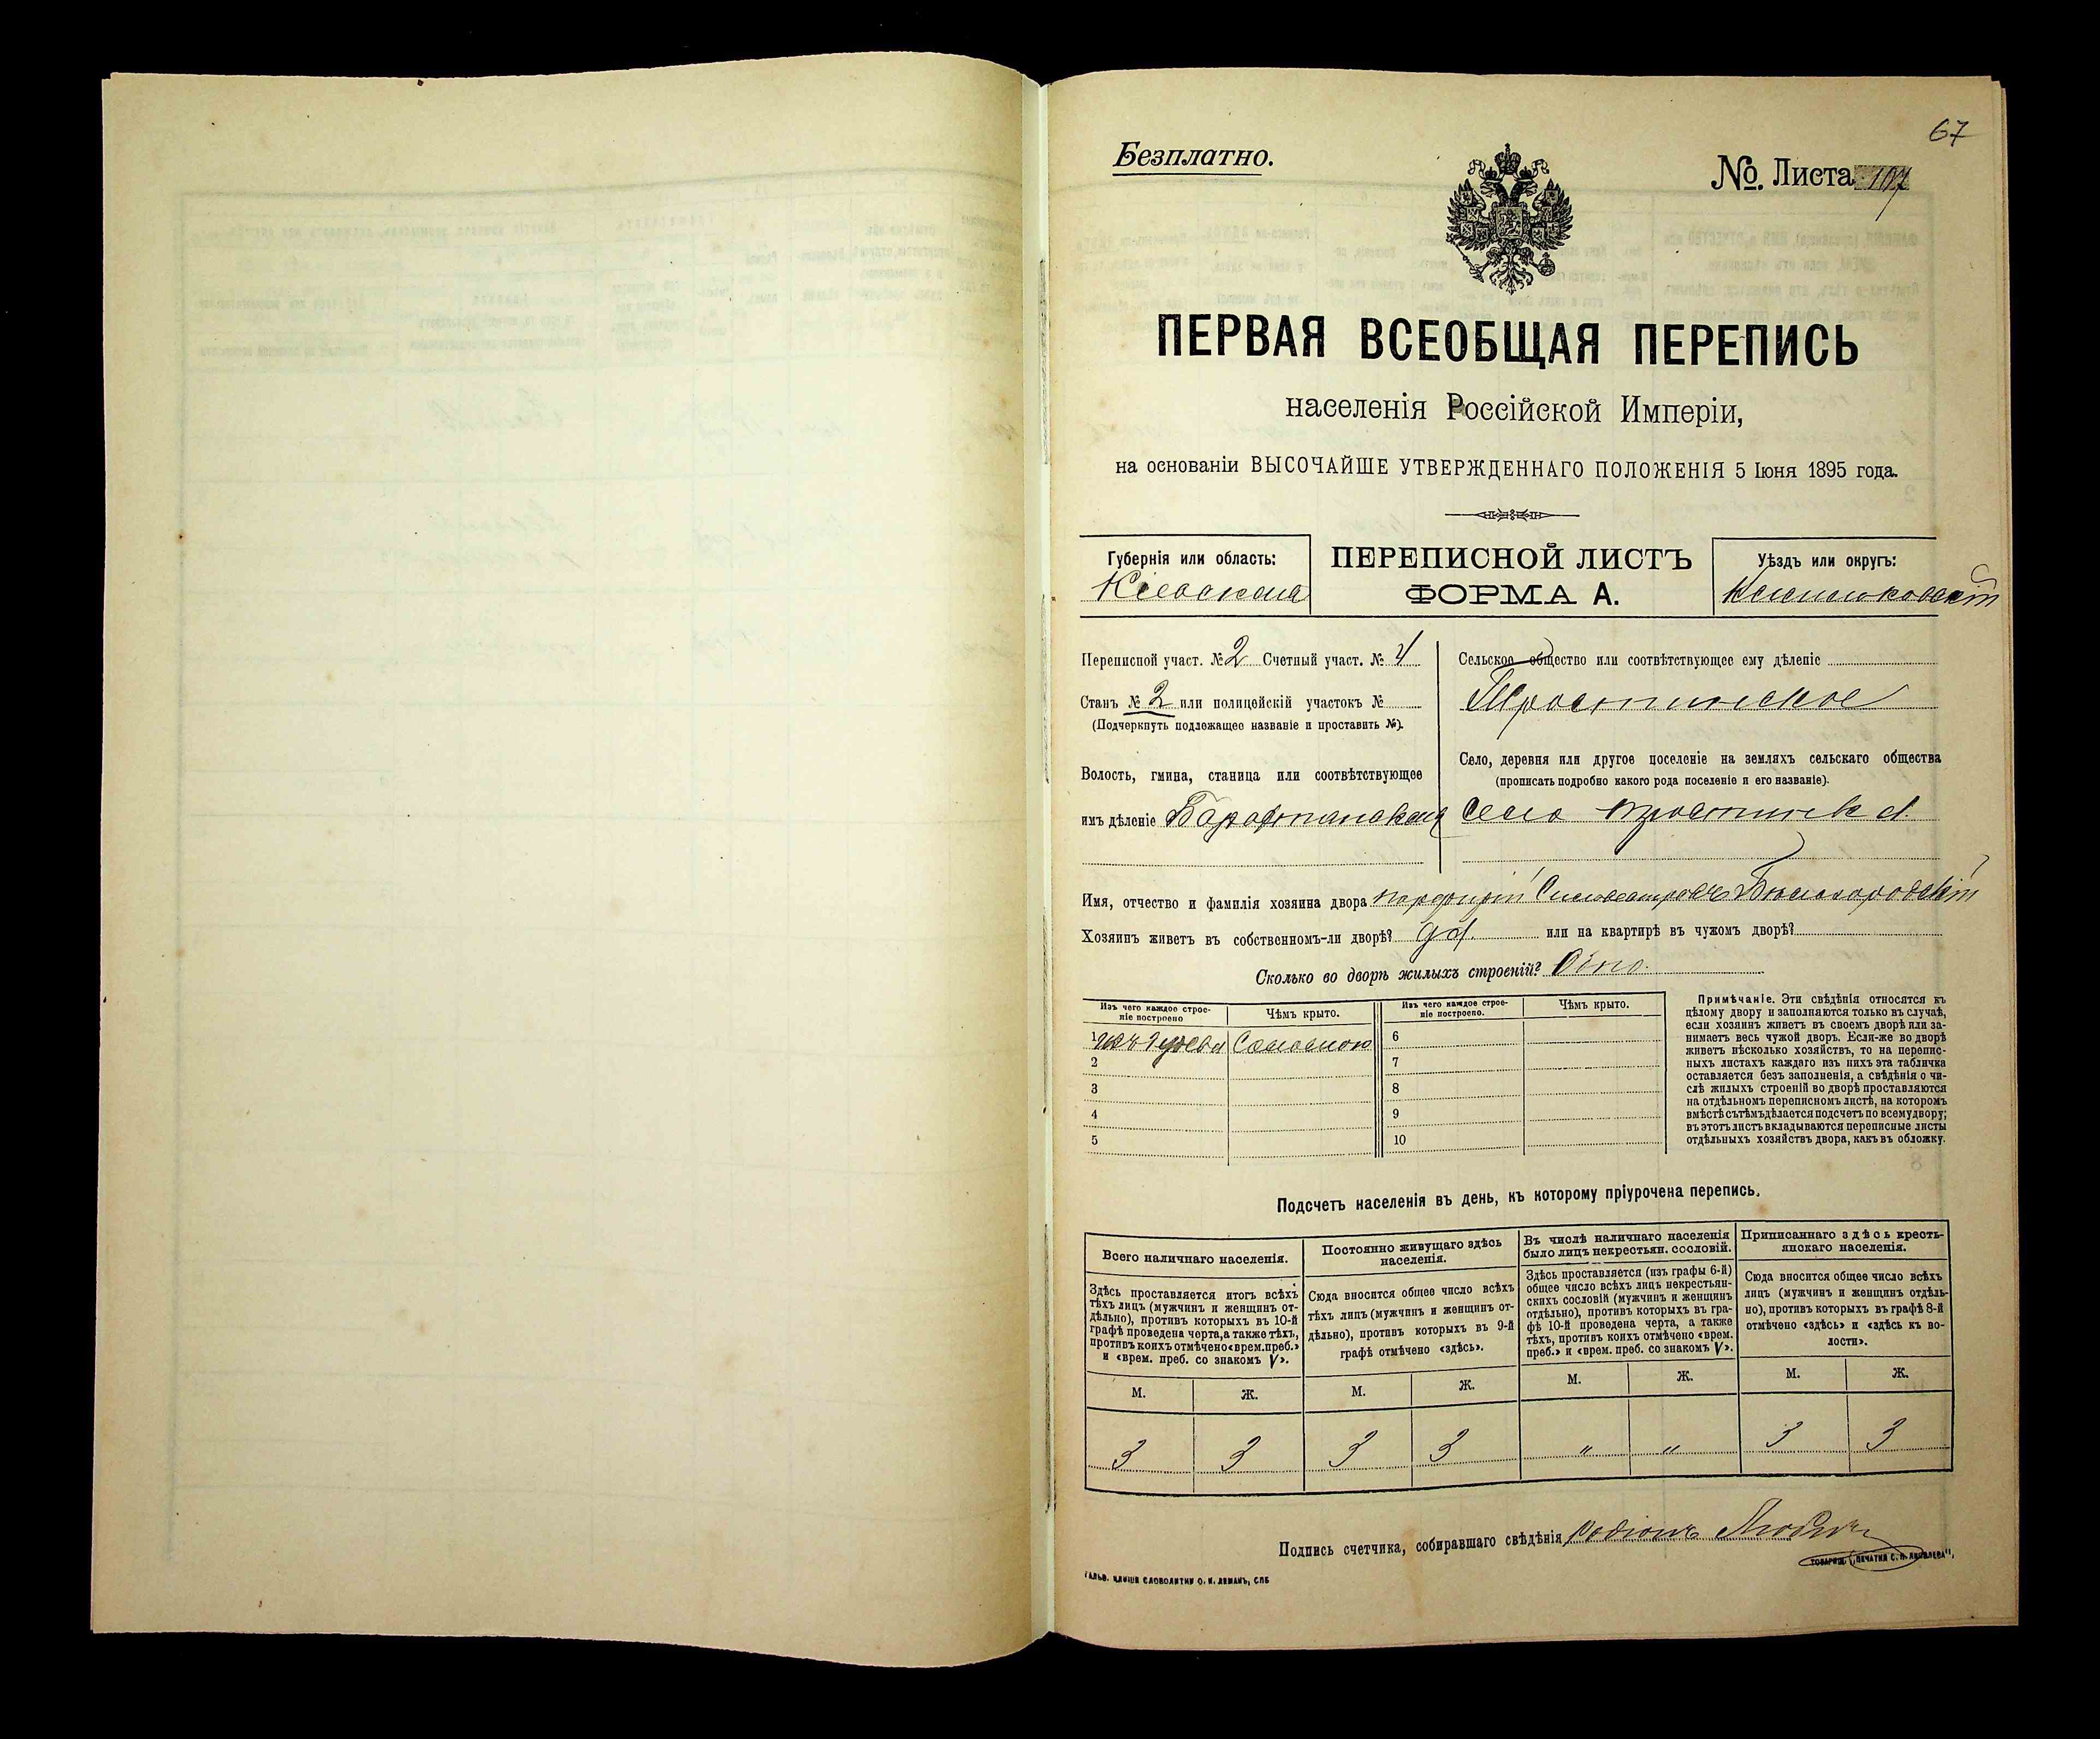 67
Безплатно.
№. Листа 107
ПЕРВАЯ ВСЕОБЩАЯ ПЕРЕПИСЬ
населенія Россійской Имперіи,
на основаніи ВЫСОЧАЙШЕ УТВЕРЖДЕННАГО ПОЛОЖЕНІЯ 5 Іюня 1895 года.
Губернія или область:
Кіевская
ПЕРЕПИСНОЙ ЛИСТЪ
ФОРМА А.
Уѣздъ или округъ:
Переписной участ. № 2 Счетный участ. № 4
Станъ № 2 или полицейскій участокъ №
(Подчеркнуть подлежащее названіе и проставить №).
Волость, гмина, станица или соотвѣтствующее
имъ дѣленіе
Сельское общество или соотвѣтствующее ему дѣленіе
Тростинское
Село, деревня или другое поселеніе на земляхъ сельскаго общества
(прописать подробно какого рода поселеніе и его названіе).
Село Тростинка
Имя, отчество и фамилія хозяина двора Порфирій Сильвестровъ Бѣлогородскій
Хозяинъ живетъ въ собственномъ-ли дворѣ? да. или на квартирѣ въ чужомъ дворѣ?
Сколько во дворѣ жилыхъ строеній? Одно.
Изъ чего каждое строе-
ніе построено
Чѣмъ крыто.
Изъ чего каждое строе-
ніе построено.
Чѣмъ крыто.
1 изъ дерева Соломою
2
3
4
5
6
7
8
9
10
Примѣчаніе. Эти свѣдѣнія относятся къ
цѣлому двору и заполняются только въ случаѣ,
если хозяинъ живетъ въ своемъ дворѣ или за-
нимаетъ весь чужой дворъ. Если-же во дворѣ
живетъ нѣсколько хозяйствъ, то на перепис-
ныхъ листахъ каждаго изъ нихъ эта табличка
оставляется безъ заполненія, а свѣдѣнія о чи-
слѣ жилыхъ строеній во дворѣ проставляются
на отдѣльномъ переписномъ листѣ, на которомъ
вмѣстѣ съ тѣмъ дѣлается подсчетъ по всему двору;
въ этотъ листъ вкладываются переписные листы
отдѣльныхъ хозяйствъ двора, какъ въ обложку.
Подсчетъ населенія въ день, къ которому пріурочена перепись.
Всего наличнаго населенія.
Здѣсь проставляется итогъ всѣхъ
тѣхъ лицъ (мужчинъ и женщинъ от-
дѣльно), противъ которыхъ въ 10-й
графѣ проведена черта, а также тѣхъ,
противъ коихъ отмѣчено «врем. преб.»
и «врем. преб. со знакомъ V».
Постоянно живущаго здѣсь
населенія.
Сюда вносится общее число всѣхъ
тѣхъ лицъ (мужчинъ и женщинъ от-
дѣльно), противъ которыхъ въ 9-й
графѣ отмѣчено «здѣсь».
Въ числѣ наличнаго населенія
было лицъ некрестьян. сословій.
Здѣсь проставляется (изъ графы 6-й)
общее число всѣхъ лицъ некрестьян-
скихъ сословій (мужчинъ и женщинъ
отдѣльно), противъ которыхъ въ гра-
фѣ 10-й проведена черта, а также
тѣхъ, противъ коихъ отмѣчено «врем.
преб.» и «врем. преб. со знакомъ V».
Приписаннаго здѣсь кресть-
янскаго населенія.
Сюда вносится общее число всѣхъ
лицъ (мужчинъ и женщинъ отдѣль-
но), противъ которыхъ въ графѣ 8-й
отмѣчено «здѣсь» и «здѣсь къ во-
лости».
М. Ж. М. Ж. М. Ж. М. Ж.
3 3 3 3 " " 3 3
Подпись счетчика, собиравшаго свѣдѣнія Родіонъ